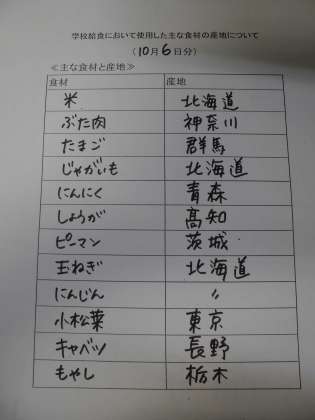 学校給食において使用した主な食材の産地について
（10月6日分）
≪主な食材と産地≫
食材 産地
米 北海道
ぶた肉 神奈川
たまご 群馬
じゃがいも 北海道
にんにく 青森
しょうが 高知
ピーマン 茨城
玉ねぎ 北海道
にんじん 〃
小松菜 東京
キャベツ 長野
もやし 栃木